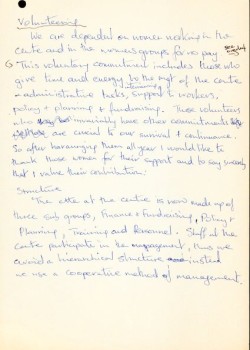 Volunteering
We are dependent on women working in the
centre and in the women's groups for no pay
This voluntary commitment includes those who
give time and energy to the mgt of the centre
- administrative tasks, support to workers,
training
policy + planning + fundraising. These volunteers
who invariably have other commitments
are crucial to our survival + continuance.
So after haranguing them all year I would like to
thank those women for their support and to say sincerely
that I value their contribution.
Structure
The ctte at the centre is now made up of
three sub groups, Finance + Fundraising, Policy +
Planning, Training and Personnel. Staff at the
centre participate in the management, thus we
avoid a hierarchical structure instead
we use a co-operative method of management.